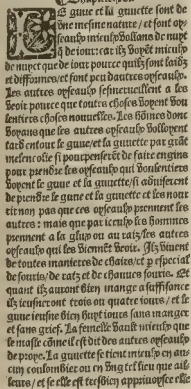 Le guue et la guuette sont de
vne mesme nature / et sont oy
seaulx mieulx vollans de nuyt
q̃ de iour: car ilz voyẽt mieulx
de nuyt que de iour pource quilz sont laidz
et difformes / et font peu dautres oyseaulx.
Les autres oyseaulx sesmerueillent a les
veoir pource que toutes choses voyent vou
lentiers choses nouuelles. Les hõmes donc
voyans que les autres oyseaulx volloyent
tard entour le guue / et la guuette par grãt
melencolie si pourpenserẽt de faire engins
pour prendre les oyseaulx qui voulentiers
voyent le guue et la guuette / si aduiserent
de prendre le guue et la guuette et les nour
rir non pas que ces oyseaulx prennent les
autres: mais que par iceulx les hommes
prennent a la glup ou au raiz / les autres
oyseaulx qui les viennẽt veoir. Ilz viuent
de toutes manieres de chairs / et p especial
de souris / de ratz et de chauues souris. Et
quant ilz auront bien mange a suffisance
ilz ieusneront trois ou quatre iours / et le
guue ieusne bien huyt iours sans manger
et sans grief. La femelle vault mieulx que
le masle cõme il est dit des autres oyseaulx
de proye. La guuette se tient mieulx en au
cun coulombier ou en
leurs / et se elle est tresbien appriuoysee elle